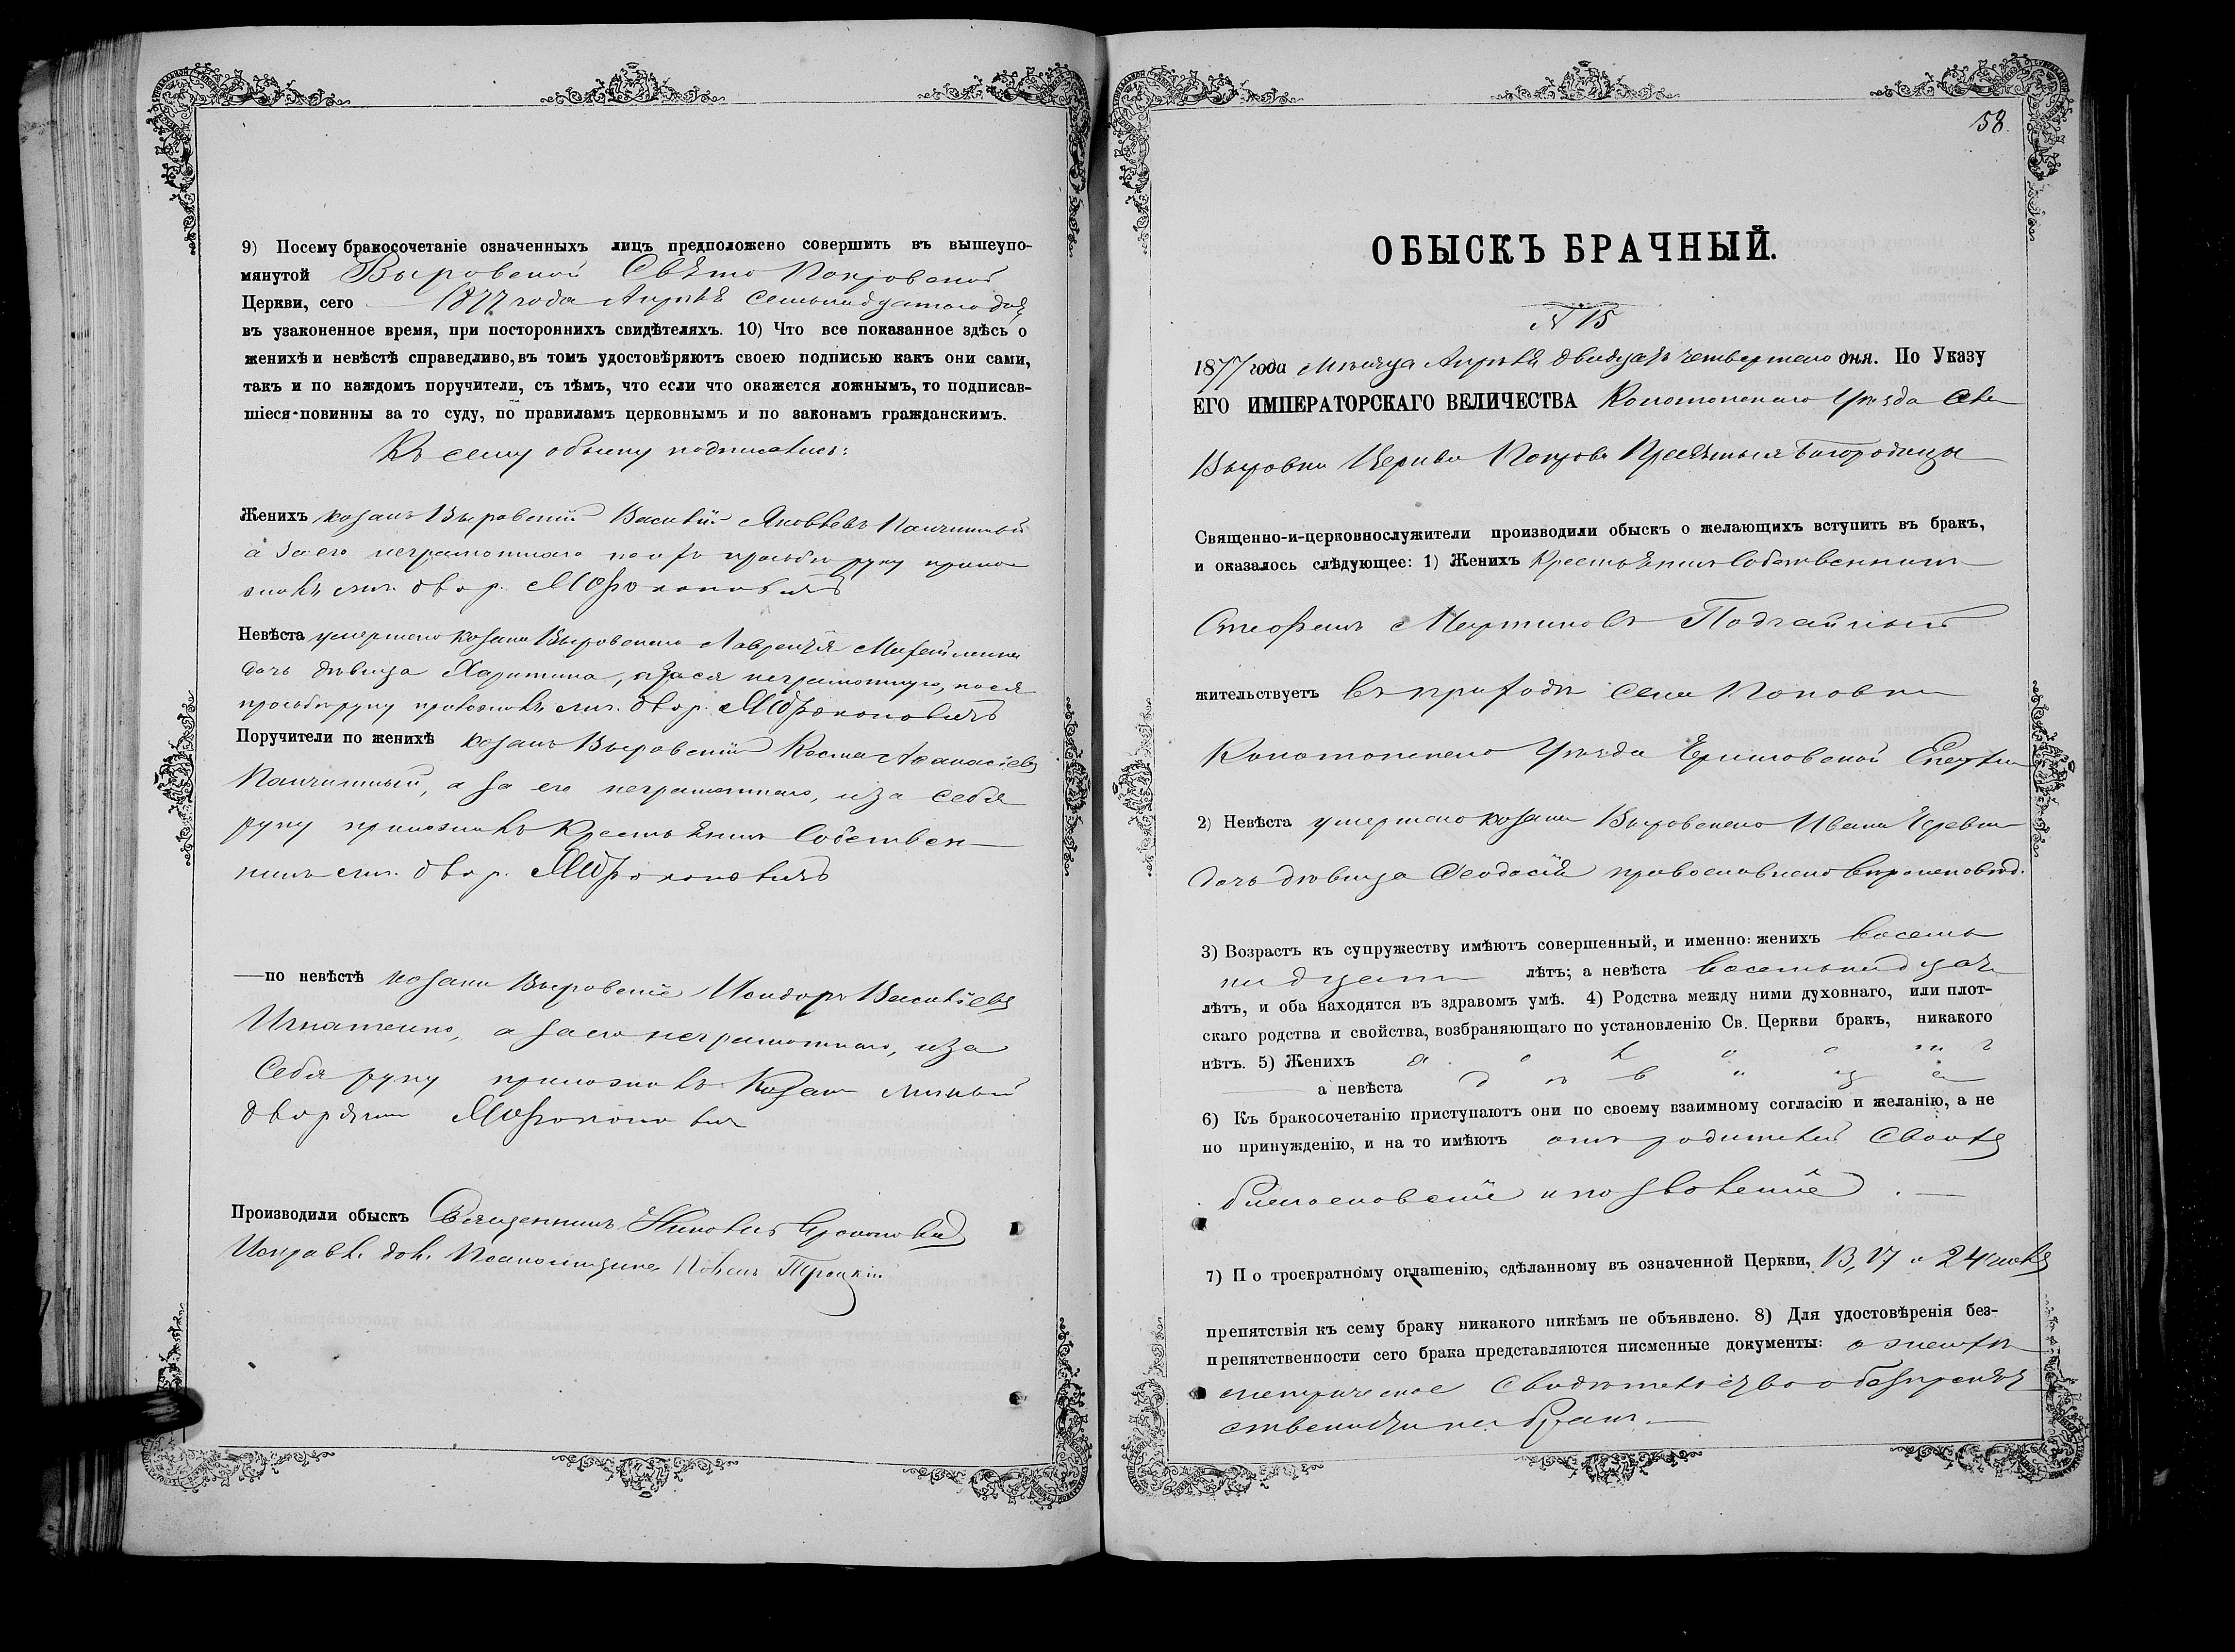 9) Посему бракосочетаніе означенныхъ лицъ предположено совершить въ вышеупо-
мянутой Выровской Свято Покровской
Церкви, сего 1877 года Апрѣля семьнадцатого дня
въ узаконенное время, при постороннихъ свидѣтеляхъ. 10) Что все показанное здѣсь о
женихѣ и невѣстѣ справедливо, въ томъ удостовѣряютъ своею подписью какъ они сами,
такъ и по каждомъ поручители, съ тѣмъ, что если что окажется ложнымъ, то подписав-
шіеся повинны за то суду, по правиламъ церковнымъ и по законамъ гражданскимъ.
Къ сему обыску подписались:
Женихъ козакъ Выровскій Василій Яковлевъ
а за его неграмотнаго по его прозьбѣ руку прило
жилъ двор.
Невѣста умершего козака Выровского Лаврентія
дочь дѣвица Харитина, а за ся неграмотную, по ся
прозьбѣ руку приложилъ двор.
Поручители по женихѣ козакъ Выровскій Косма Аѳанасіевъ
а за его неграмотнаго, и за себя
руку приложилъ Крестьянинъ Собствен-
никъ двор.
—по невѣстѣ козаки Выровскіе Исидоръ Василіевъ
Игнатенко, а за его неграмотнаго, и за
себя руку приложилъ Козакъ личный
дворянин
Производили обыскъ Священникъ
Исправл. дол. Псаломщика Павелъ Троцкій
58.
ОБЫСКЪ БРАЧНЫЙ.
№ 15
1877 года Мѣсяца Апрѣля двадцать четвертаго дня. По Указу
ЕГО ИМПЕРАТОРСКАГО ВЕЛИЧЕСТВА Конотопскаго Уѣзда Села
Выровки Церкви Покрова Пресвятыя Богородицы
Священно-и-церковнослужители производили обыскъ о желающихъ вступить въ бракъ,
и оказалось слѣдующее: 1) Женихъ Крестьянинъ Собственникъ
Стефанъ Мартиновъ Подгайный
жительствуетъ въ приходѣ села Поповки
Конотопского Уѣзда Черниговской Епархіи
2) Невѣста умершего козака Выровского Ивана Черевка
дочь дѣвица Ѳеодосія православного вѣроисповѣд.
3) Возрастъ къ супружеству имѣютъ совершенный, и именно: женихъ восемь
надцать лѣтъ; а невѣста восемьнадцать
лѣтъ, и оба находятся въ здравомъ умѣ. 4) Родства между ними духовнаго, или плот-
скаго родства и свойства, возбраняющаго по установленію Св. Церкви бракъ, никакого
нѣтъ. 5) Женихъ холостъ
а невѣста дѣвица
6) Къ бракосочетанію приступаютъ они по своему взаимному согласію и желанію, а не
по принужденію, и на то имѣютъ отъ родителей своихъ
благословеніе и позволеніе.
7) По троекратному оглашенію, сдѣланному въ означенной Церкви, 13, 17 и 24 числъ
препятствія къ сему браку никакого никѣмъ не объявлено. 8) Для удостовѣренія без-
препятственности сего брака представляются писменные документы: о женихѣ
метрическое свидѣтельство о безпрепят
ственности на бракъ.